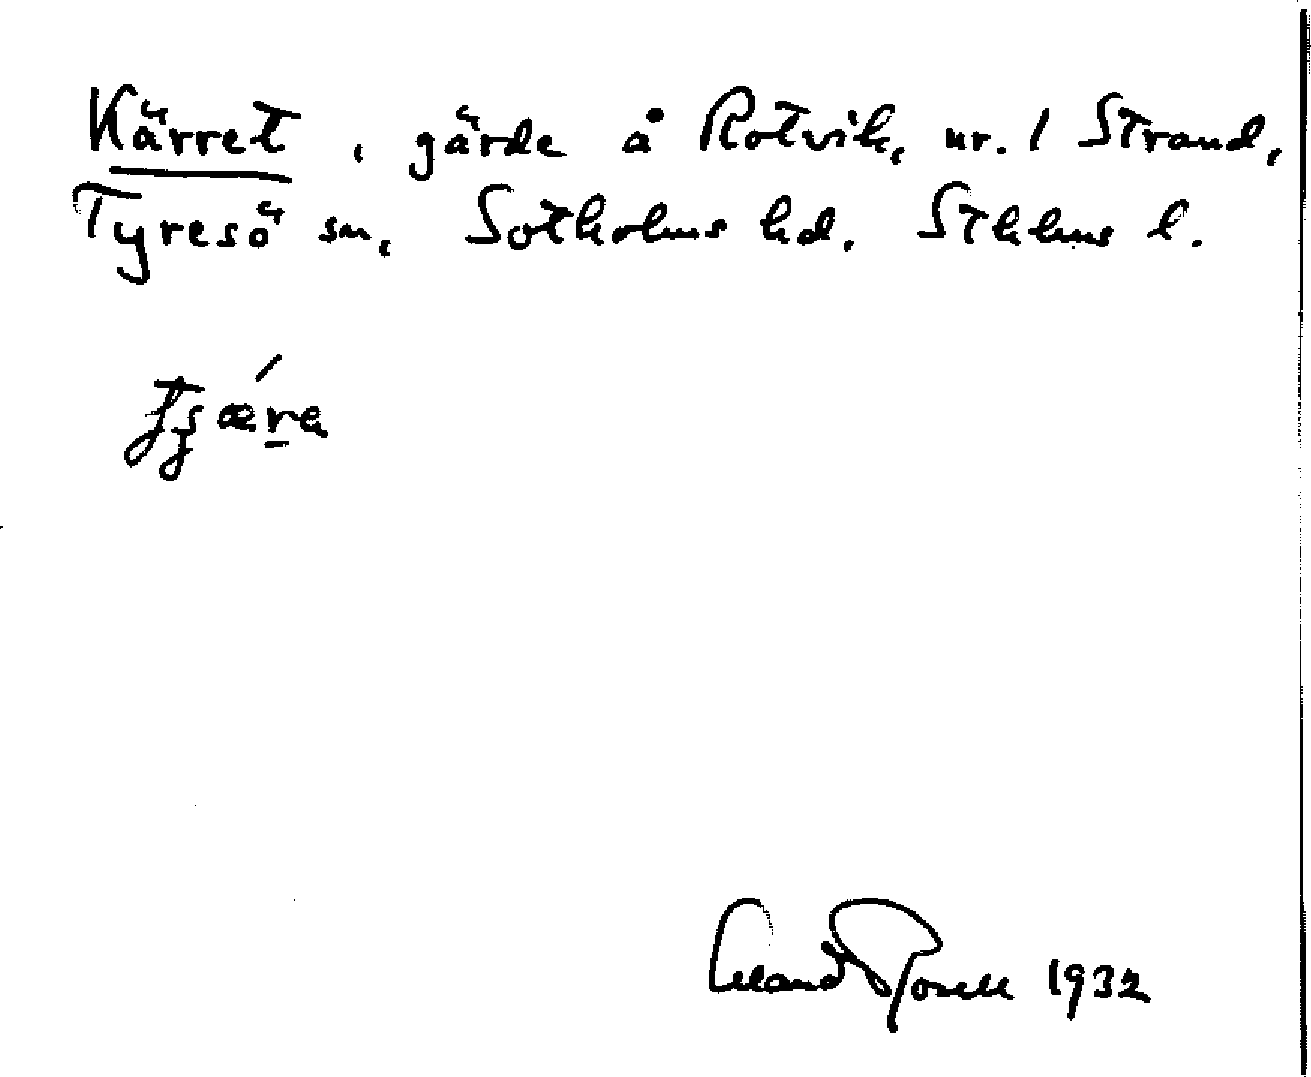 Kärret, gärde å Rotvik, nr. 1 Strand,
Tyresö sn, Sotholms hd. Sthlms l.
1932